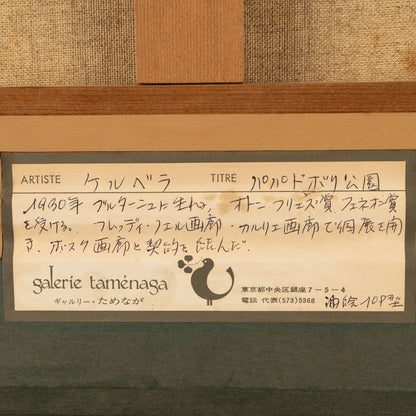 ARTISTE ケルベラ TITRE パルドボリ公園
1930年 ブルターニュに生れ。オトン・フリエズ賞 フェネオン賞
を受ける。フレッディ・フェル画廊・カルリエ画廊で個展を開
き、ボスク画廊と契約をむすんだ。
galerie taménaga
ギャルリー・ためなが
東京都中央区銀座7-5-4
電話 代表(573)5368 油絵10P型